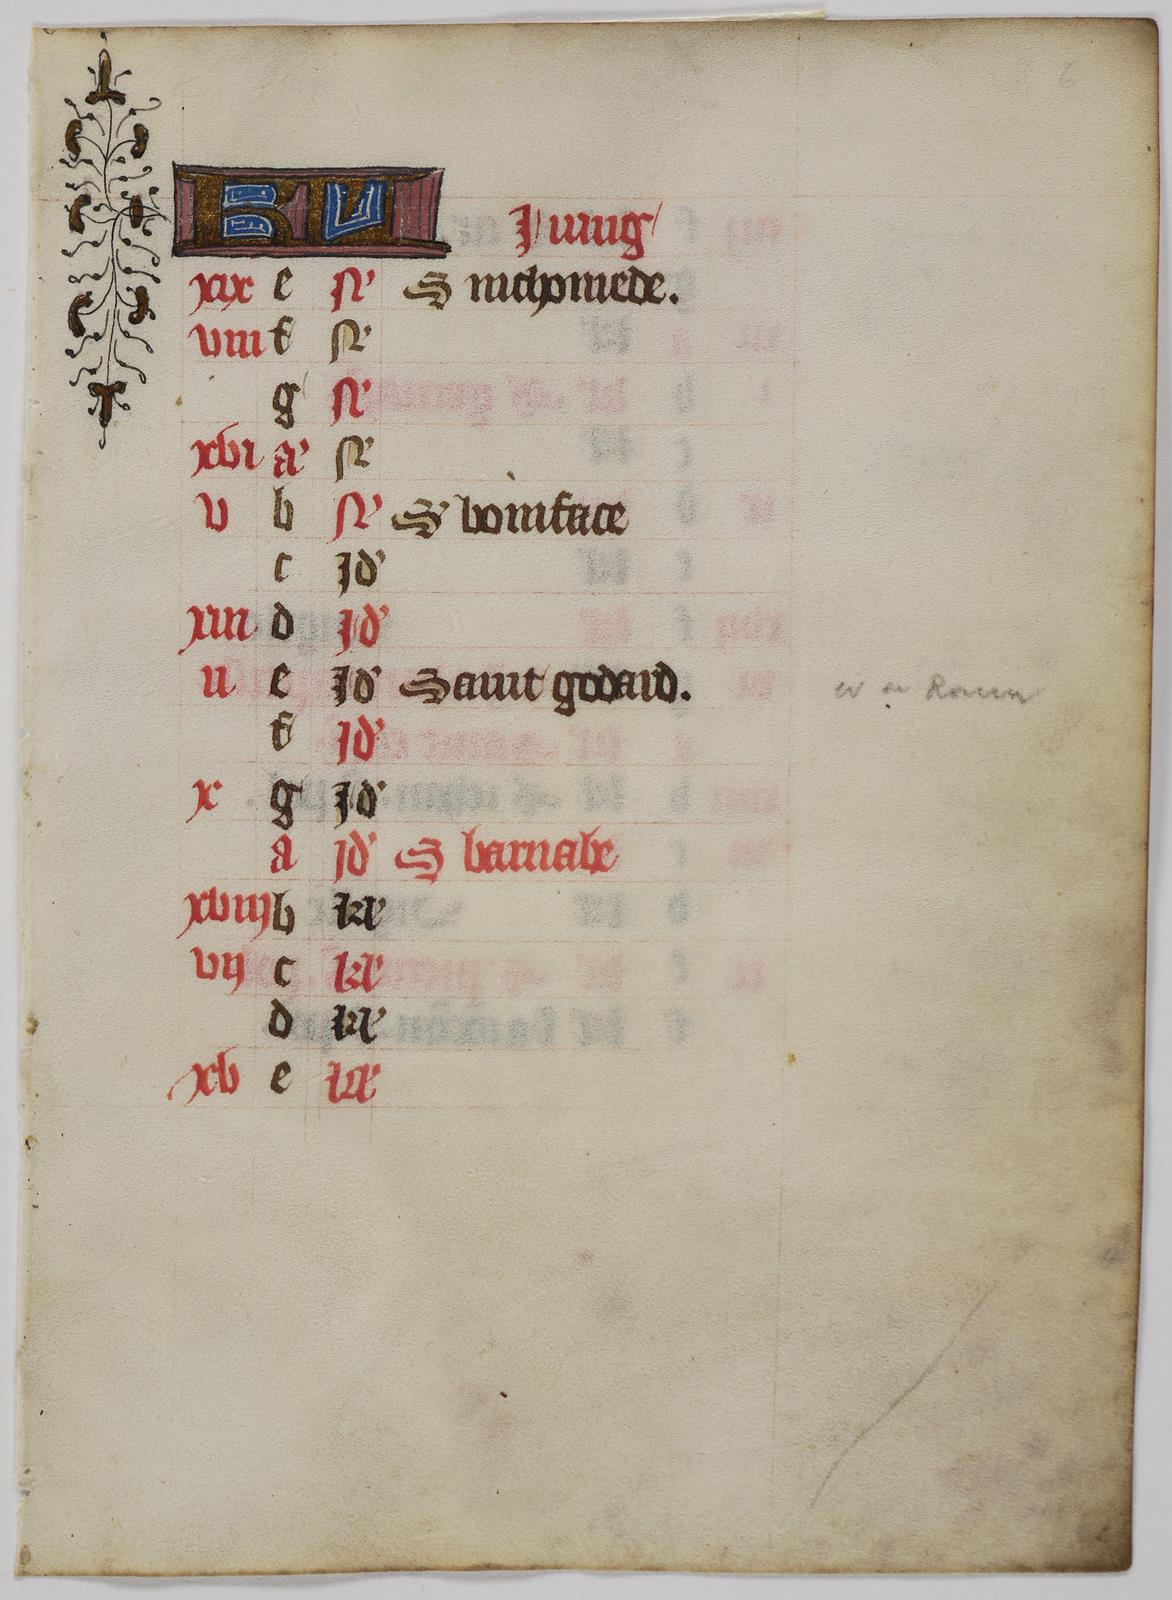 KL Iunig
xix e N' S nichomede.
viii f N'
g N'
xvi a N'
v b N' S' boniface
c Id'
xiii d Id'
ii e Id' Saint godard.
f Id'
x g Id'
a Id' S barnabe
xviij b kl'
vij c kl'
d kl'
xv e kl'